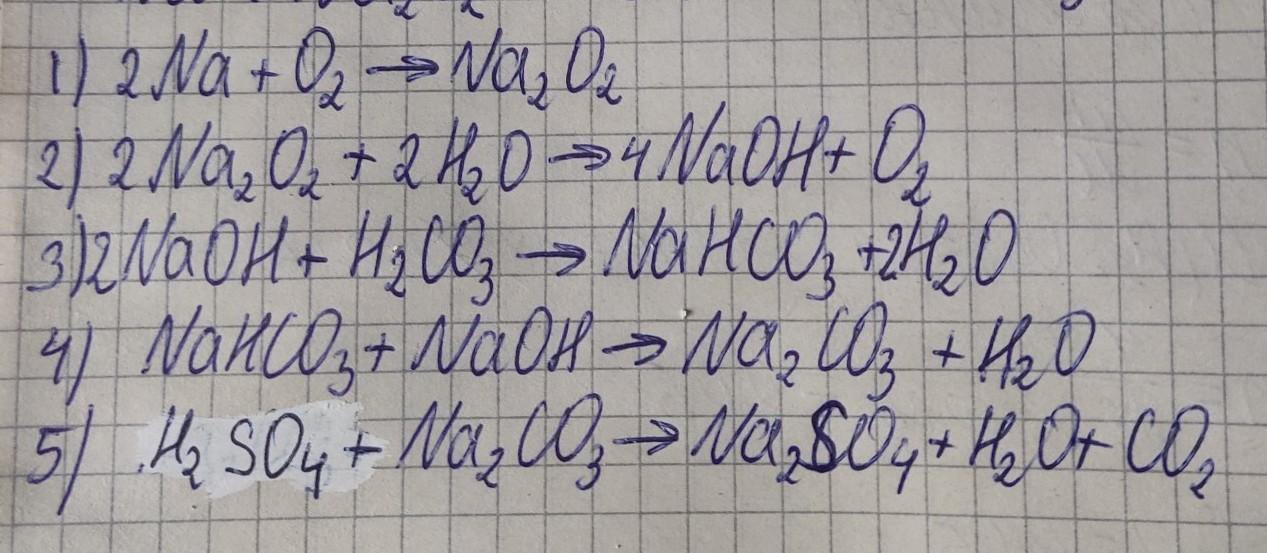 1) 2Na + O₂ → Na₂O₂
2) 2Na₂O₂ + 2H₂O → 4NaOH + O₂
3) 2NaOH + H₂CO₃ → NaHCO₃ + 2H₂O
4) NaHCO₃ + NaOH → Na₂CO₃ + H₂O
5) H₂SO₄ + Na₂CO₃ → Na₂SO₄ + H₂O + CO₂